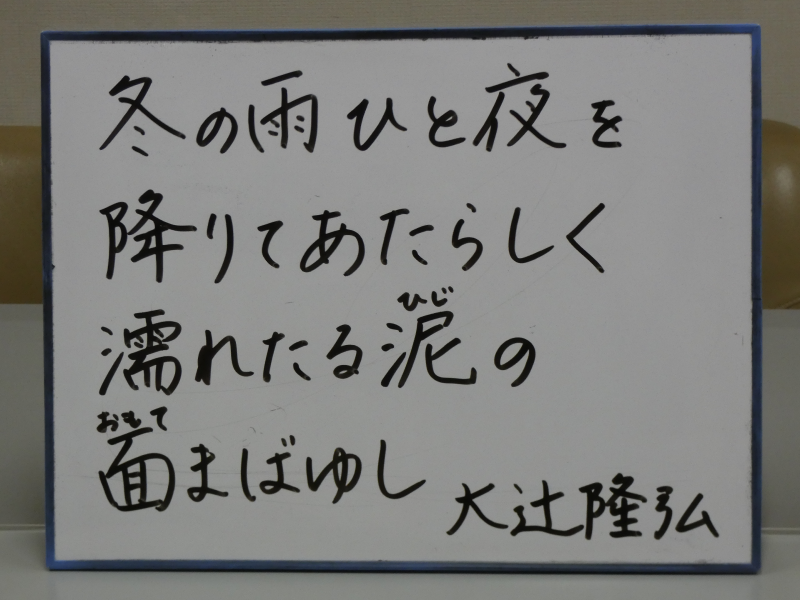 冬の雨ひと夜を
降りてあたらしく
ひじ
濡れたる泥の
おもて
面まばゆし
大辻隆弘